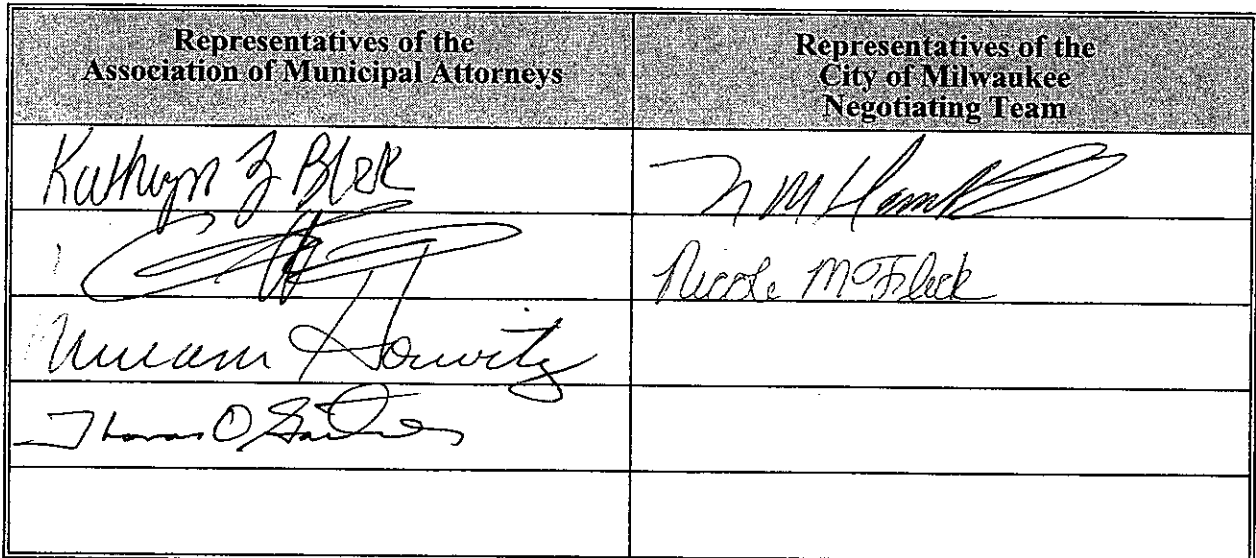 Representatives of the
Association of Municipal Attorneys
Representatives of the
City of Milwaukee
Negotiating Team
Kathryn Z Block
Miriam Horwitz
Nicole M Fleck
Thomas O